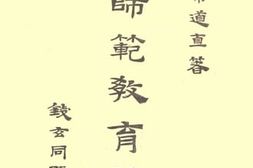 道直著
師範教育
錢玄同